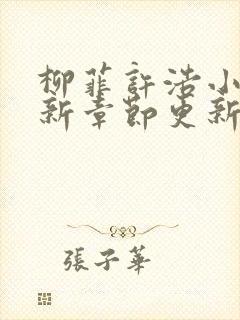 柳菲許浩小
新章節更新
張子華